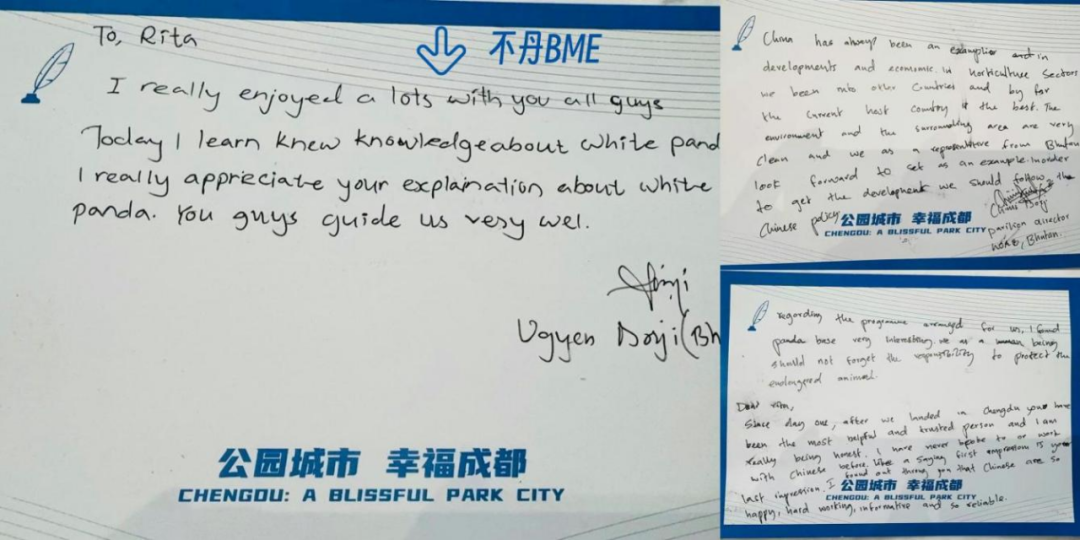 To, Rita
不丹BME
I really enjoyed a lots with you all guys
Today I learn knew knowledge about white pand
I really appreciate your explaination about white
panda. You guys guide us very wel.
Ugyen Dorji (Bh
公园城市 幸福成都
CHENGDU: A BLISSFUL PARK CITY
China has always been an in
developments and economic in horticulture sectors
we been into other Countries and by far
the current host Country is the best. The
environment and the surrounding area are very
clean and we as a representative from Bhutan
look forward to set as an example. Inorder
to get the development we should follow the
Chinese policy
Dorji
pavilion director
Bhutan.
公园城市 幸福成都
CHENGDU: A BLISSFUL PARK CITY
regarding the programme arranged for us, I found
panda base very interesting. We as a human being
should not forget the responsibility to protect the
endangered animal.
Since day one, after we landed in Chengdu you have
been the most helpful and trusted person and I am
really being honest. I have never to or work
with Chinese before. Like a saying first impression is your
last impression. I found out through you that Chinese are so
happy, hard working, informative and so reliable.
公园城市 幸福成都
CHENGDU: A BLISSFUL PARK CITY